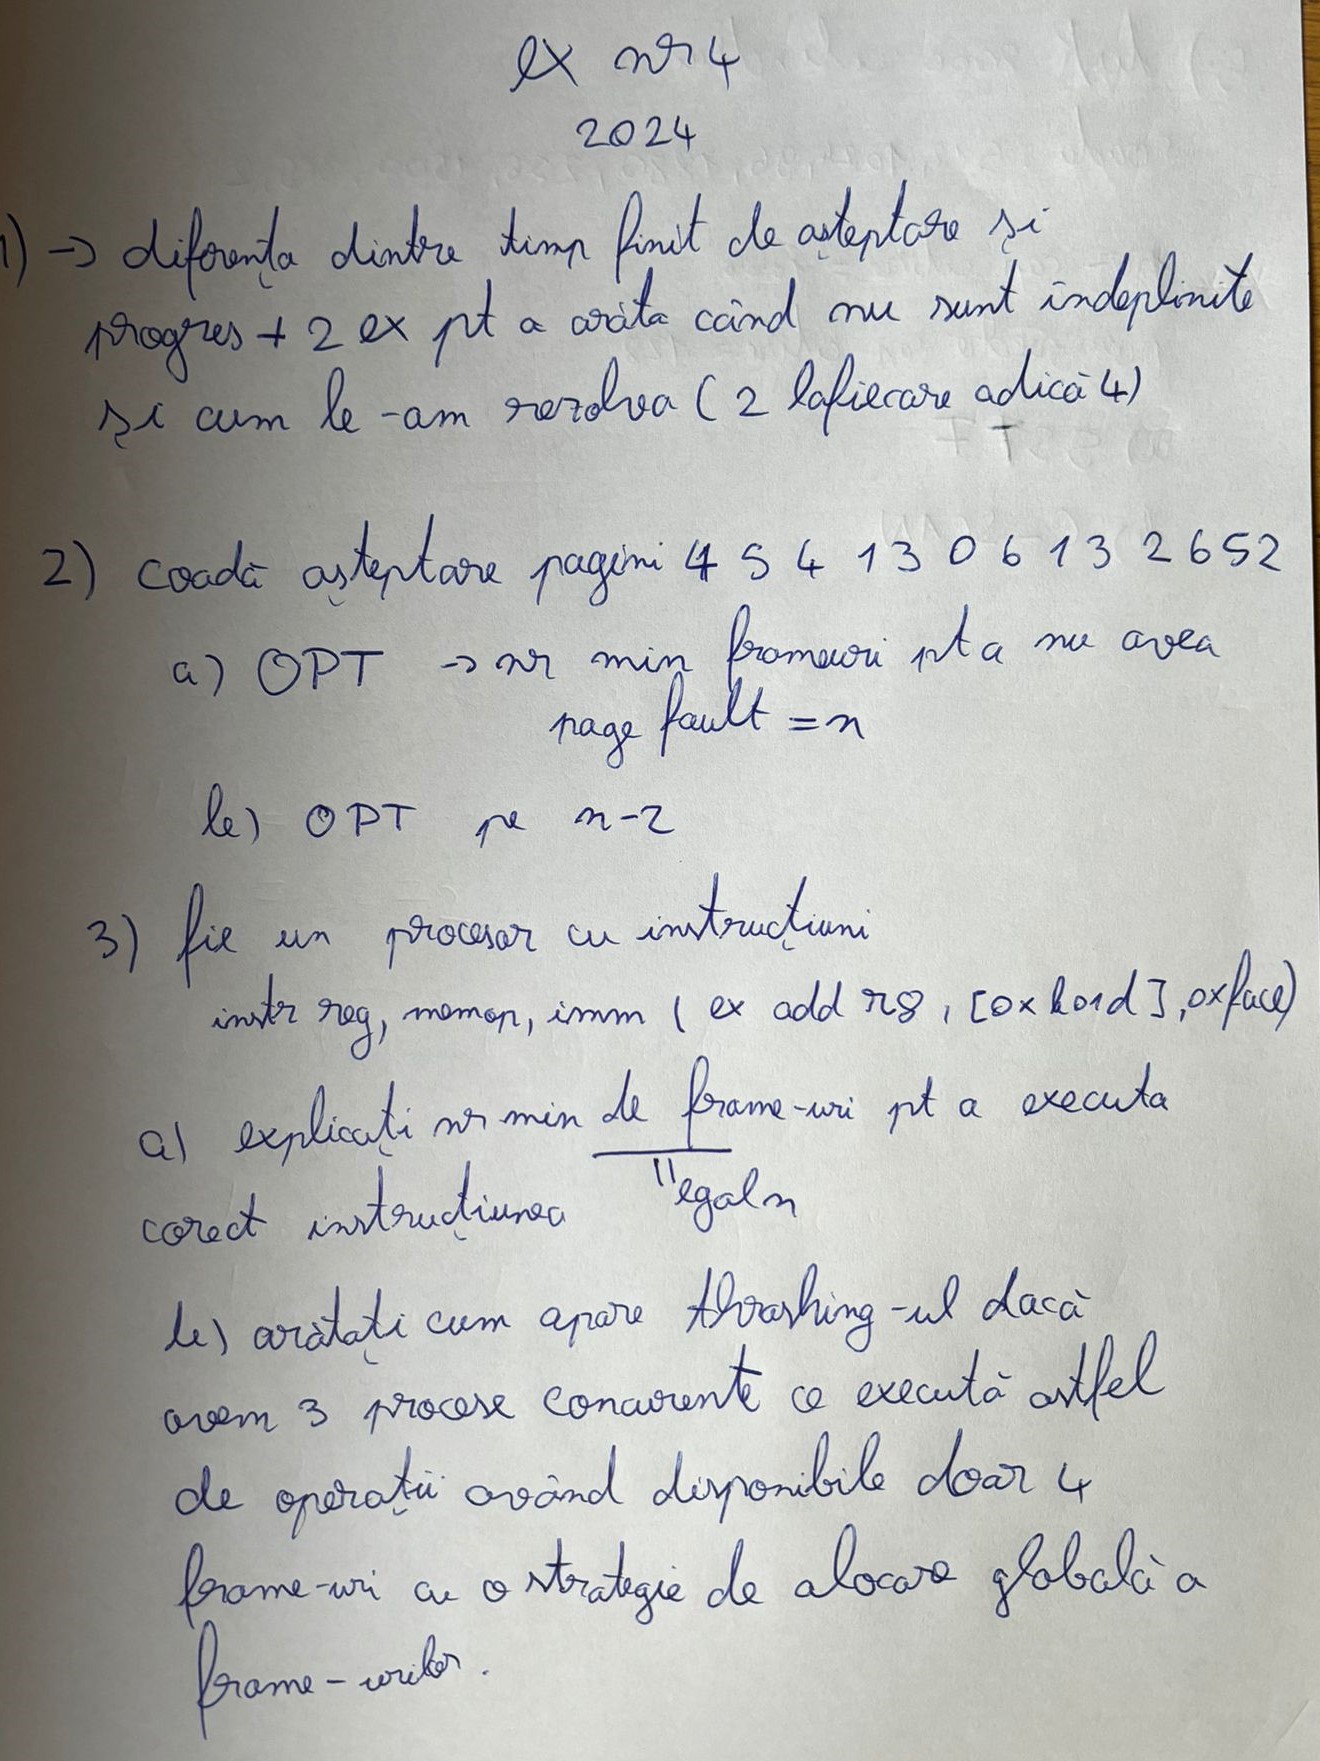 ex nr 4
2024
1) → diferența dintre timp finit de așteptare și
progres + 2 ex pt a arăta când nu sunt îndeplinite
și cum le-am rezolva (2 lafiecare adică 4)
2) coadă așteptare pagini 4 5 4 1 3 0 6 1 3 2 6 5 2
a) OPT → nr min frameuri pt a nu avea
page fault = n
b) OPT pe n-2
3) fie un procesor cu instrucțiuni
instr reg, memop, imm (ex add r8, [0xb01d], 0xface)
a) explicați nr min de frame-uri pt a executa
egal n
corect instrucțiunea
b) arătați cum apare thrashing-ul dacă
avem 3 procese concurente ce execută astfel
de operații având disponibile doar 4
frame-uri cu o strategie de alocare globală a
frame-urilor.